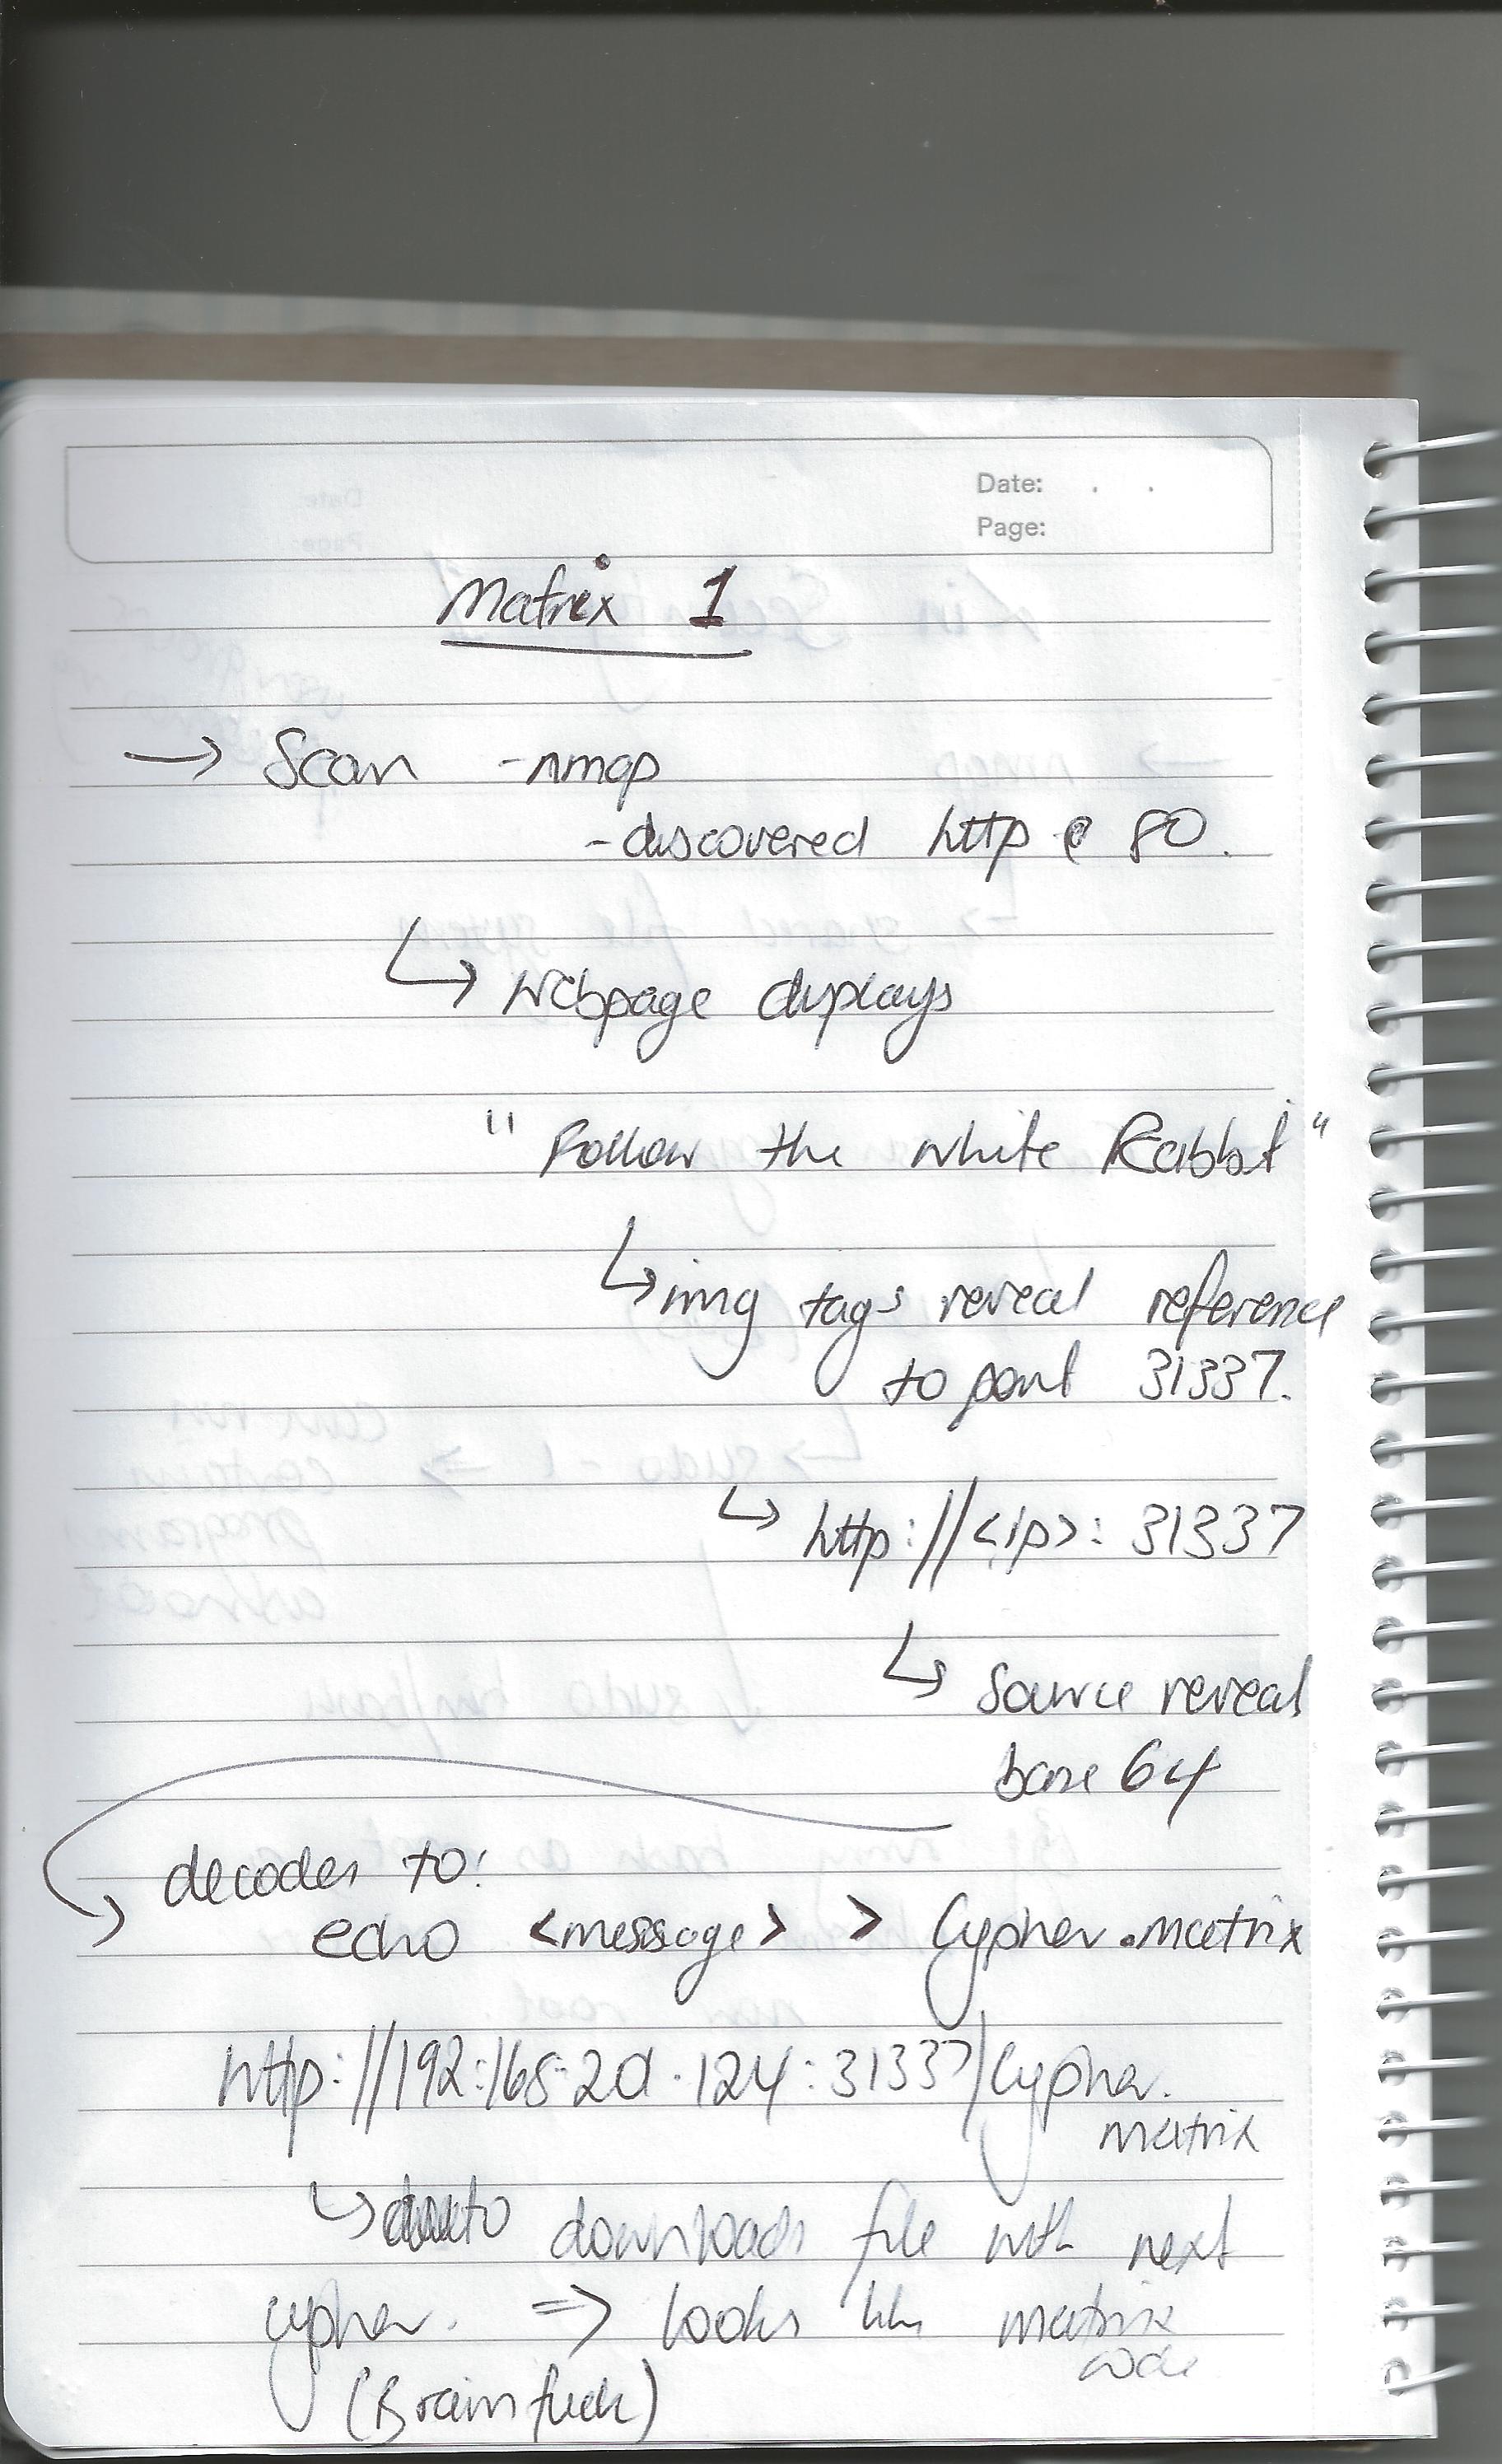 Date: . .
Page:
Matrix 1
→ Scan - nmap
- discovered http @ 80.
↳ Webpage displays
" Follow the white Rabbit "
↳ img tags reveal reference
to port 31337.
↳ http://<ip>: 31337
↳ Source reveal
base 64
decodes to:
echo <message> > Cypher.matrix
http://192.168.20.124:31337/Cypher.
matrix
↳ auto downloads file with next
cypher. => looks like matrix
code
(Brainfuck)